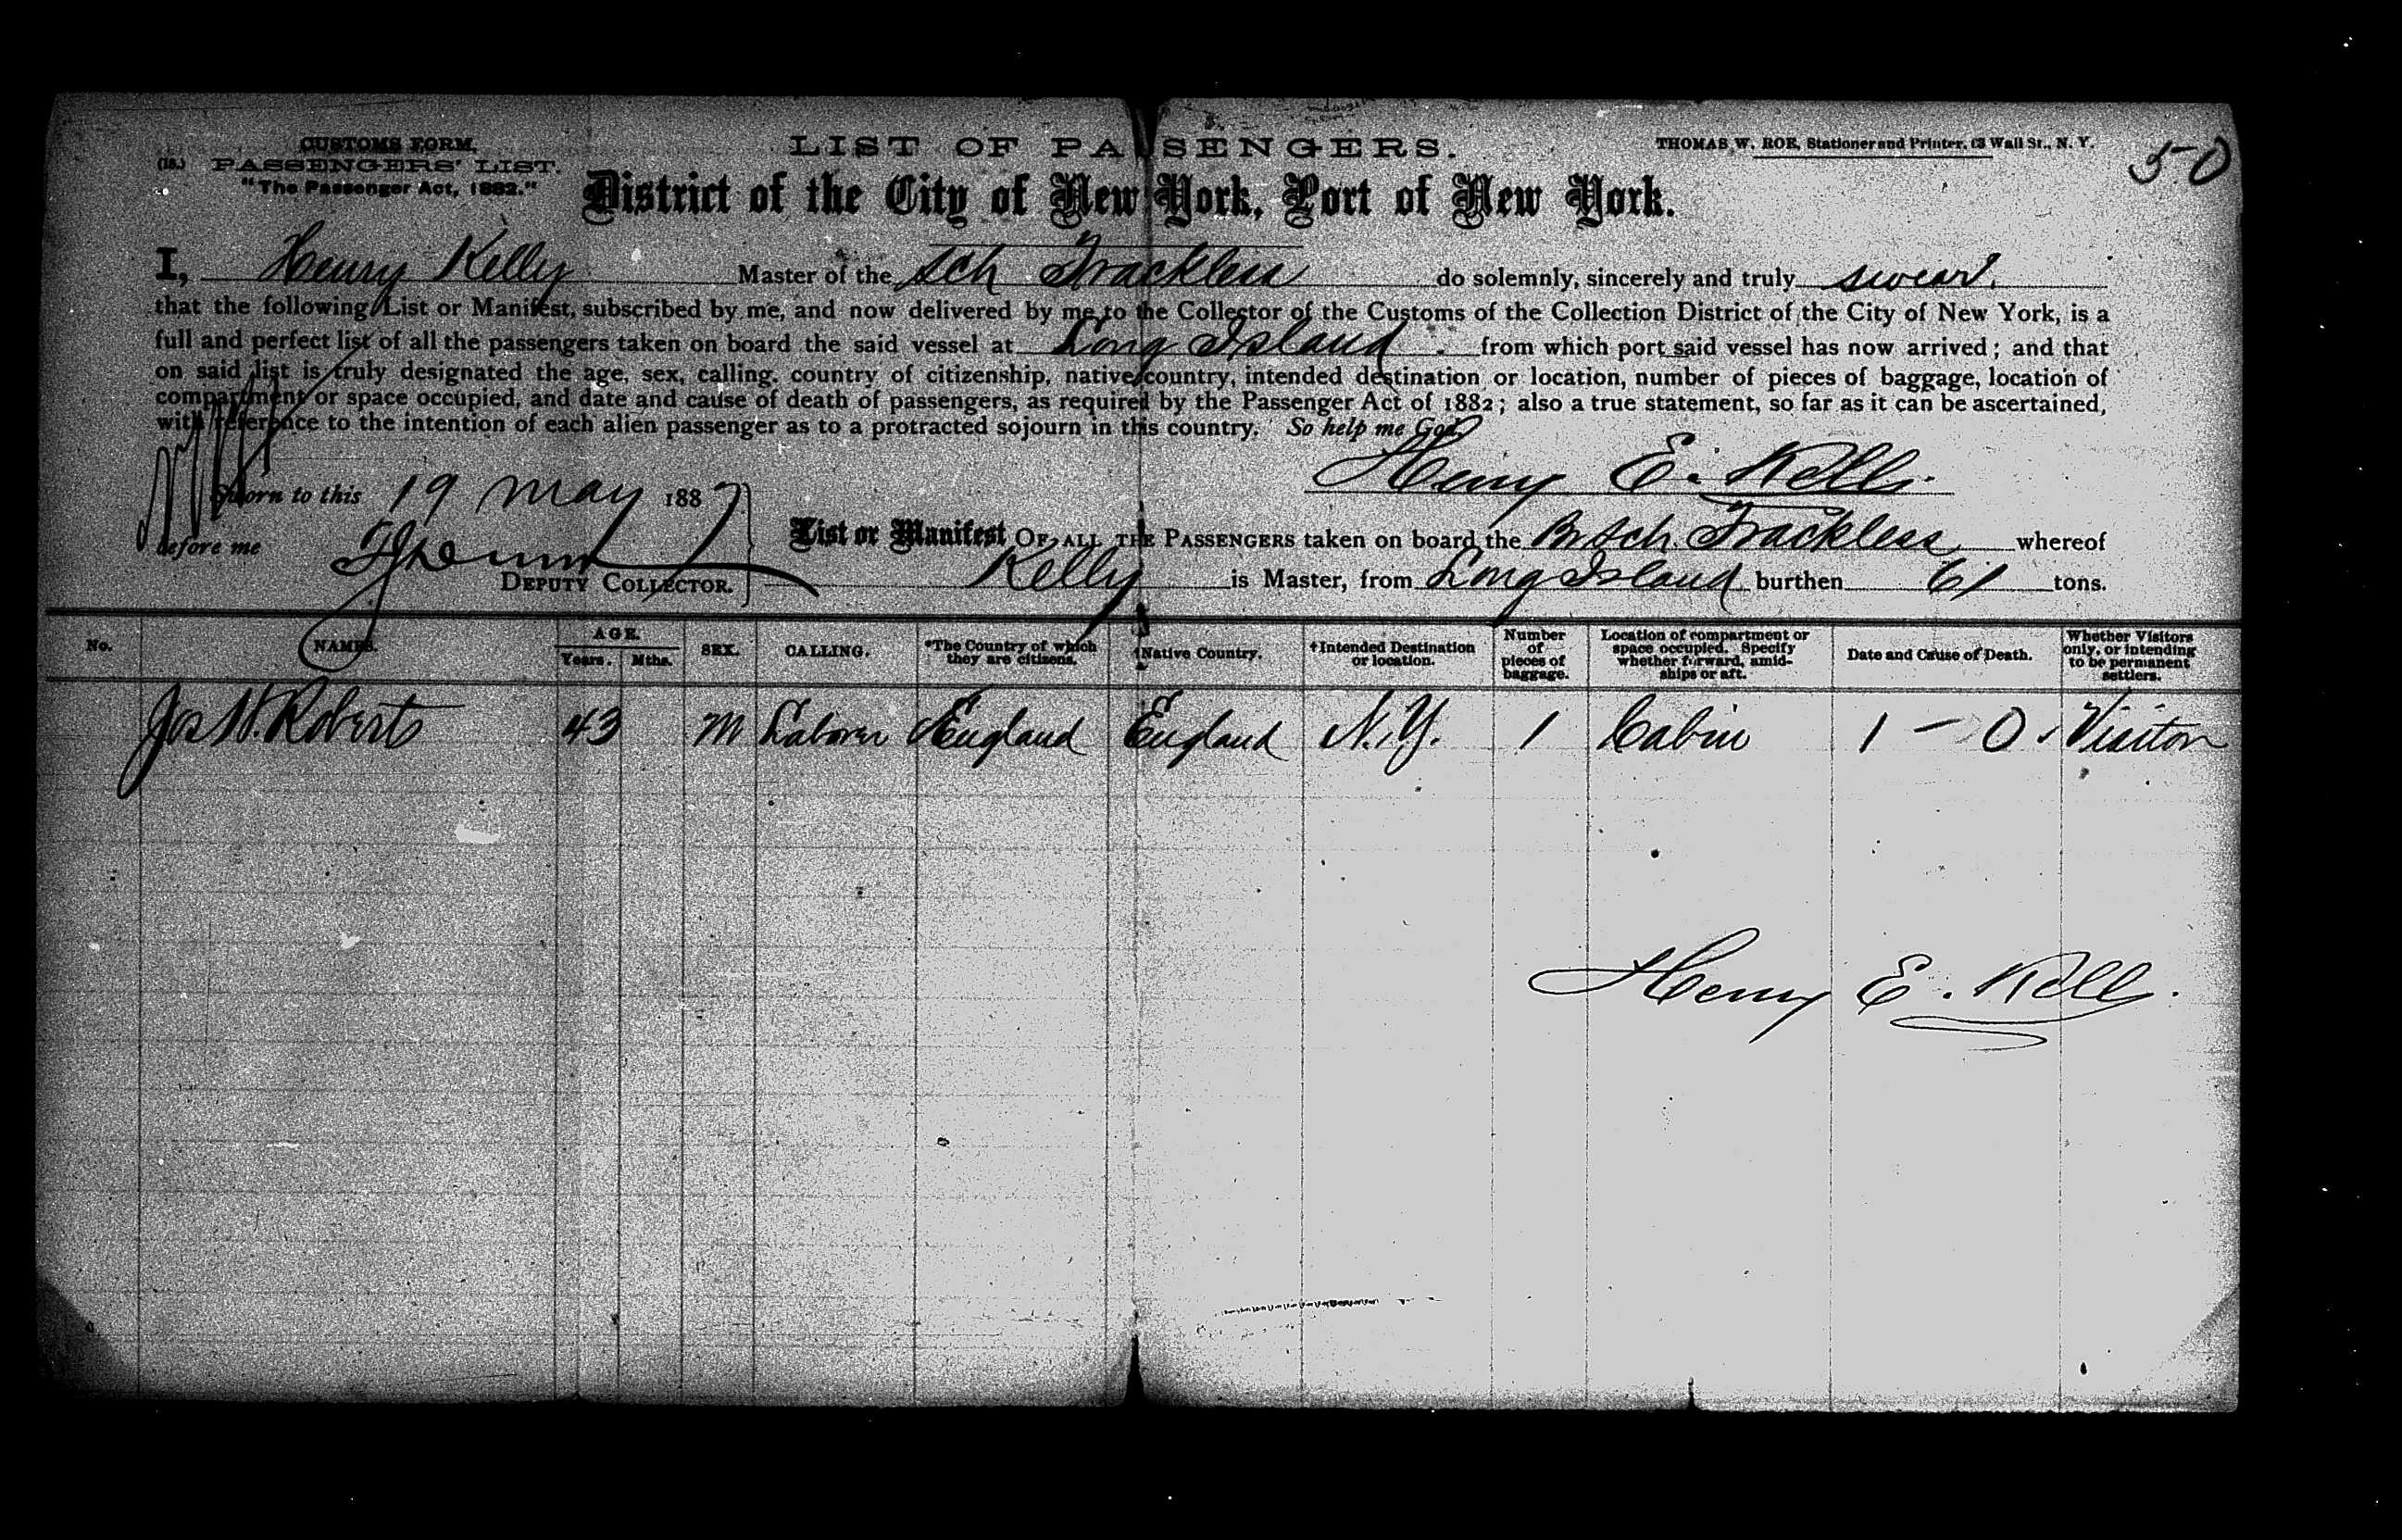 CUSTOMS FORM.
(18.) PASSENGERS' LIST.
"The Passenger Act, 1882."
LIST OF PASSENGERS.
THOMAS W. ROE, Stationer and Printer, 13 Wall St., N. Y.
50
District of the City of New York, Port of New York.
I, Henry Kelly Master of the Sch Trackless do solemnly, sincerely and truly swear.
that the following List or Manifest, subscribed by me, and now delivered by me to the Collector of the Customs of the Collection District of the City of New York, is a
full and perfect list of all the passengers taken on board the said vessel at Long Island from which port said vessel has now arrived; and that
on said list is truly designated the age, sex, calling, country of citizenship, native country, intended destination or location, number of pieces of baggage, location of
compartment or space occupied, and date and cause of death of passengers, as required by the Passenger Act of 1882; also a true statement, so far as it can be ascertained,
with reference to the intention of each alien passenger as to a protracted sojourn in this country. So help me God.
Henry E. Kelly
Sworn to this 19 May 1887
before me
DEPUTY COLLECTOR.
List or Manifest OF ALL THE PASSENGERS taken on board the Br Sch. Trackless whereof
Kelly is Master, from Long Island burthen 61 tons.
No. NAMES. AGE. Years. Mths. SEX. CALLING. *The Country of which they are citizens. †Native Country. ‡Intended Destination or location. Number of pieces of baggage. Location of compartment or space occupied. Specify whether forward, amidships or aft. Date and Cause of Death. Whether Visitors only, or intending to be permanent settlers.
Jos W. Roberts 43 M Laborer England England N.Y. 1 Cabin 1 – 0. Visitor
Henry E. Kelly.